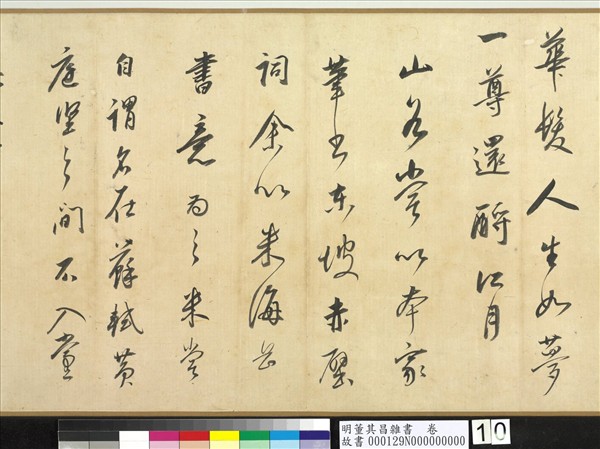 華髮人生如夢
一尊還酹江月
山谷嘗以本家
筆書東坡赤壁
詞余以米海岳
書意為之米嘗
自謂名在蘇軾黃
庭堅之間不入黨
明董其昌雜書 卷
故書 000129N000000000
10